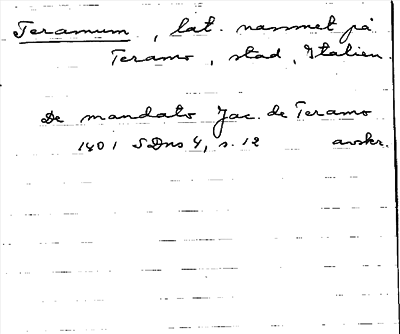 Teramum, lat. namnet på
Teramo, stad, Italien.
De mandato Jac. de Teramo
1401 SDns 4, s. 12 avskr.